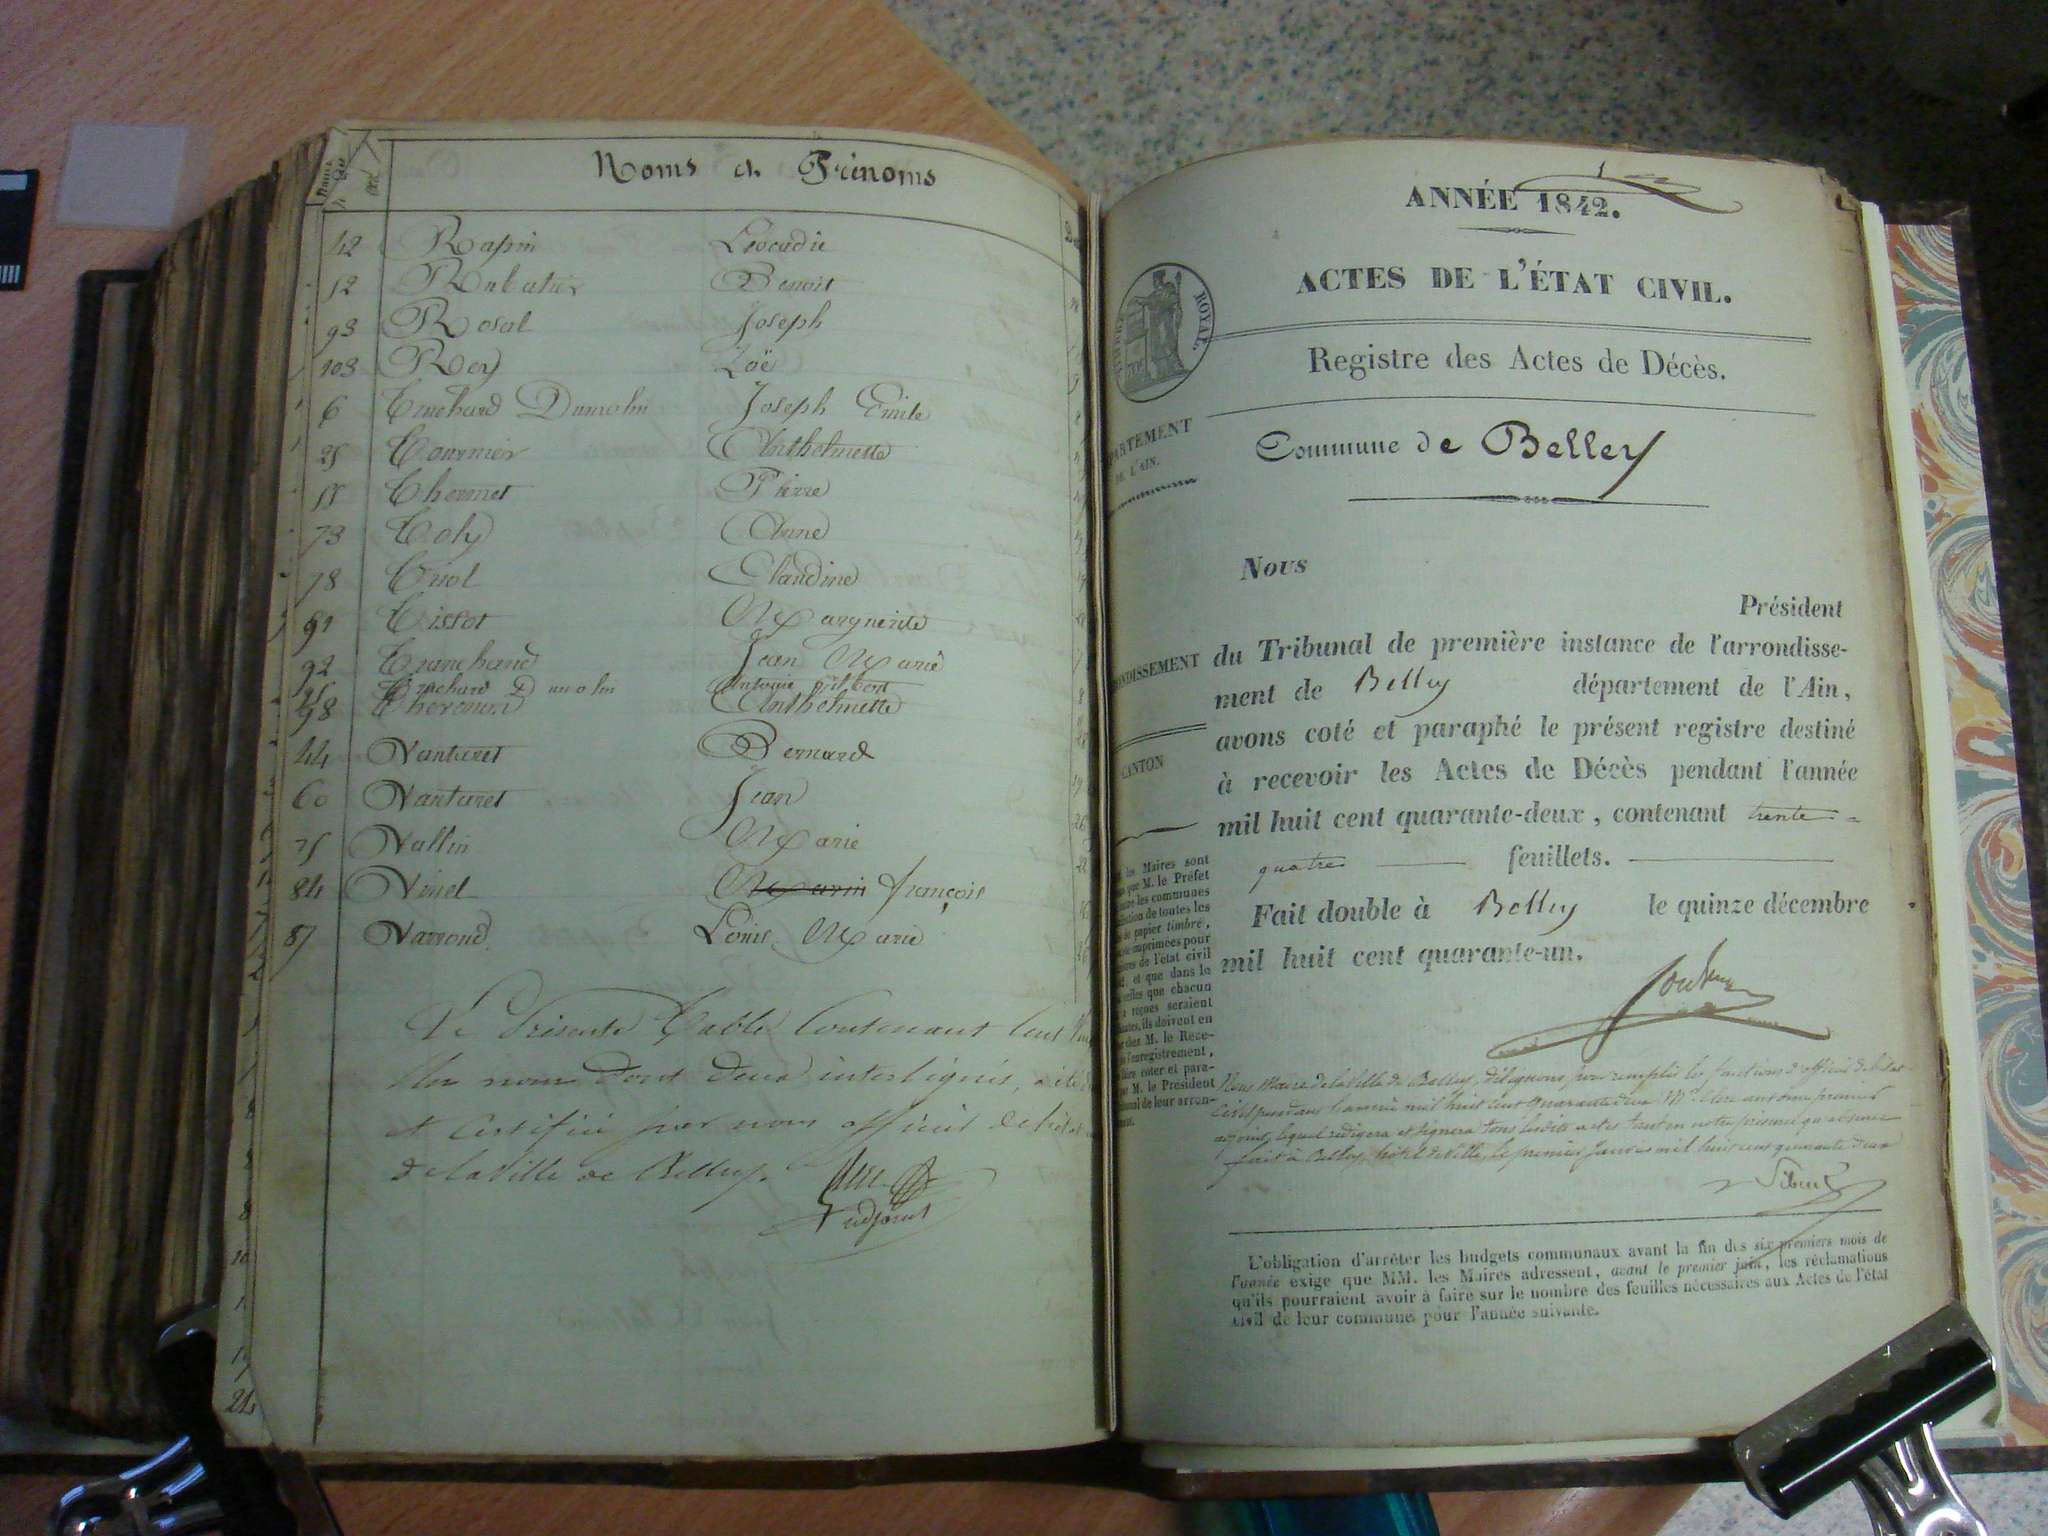 Noms et Prénoms
42 Rapin Léocadie
12 Rubatier Benoit
93 Rosal Joseph
103 Rey Zoë
6 Truchard Dumolin Joseph Emile
25 Tournier Anthelmette
55 Thermet Pierre
73 Toly Anne
78 Triol Claudine
91 Tissot Marguerite
92 Tranchand Jean Marie
Truchard Dumolin Antoine Gilbert
98 Anthelmette
44 Vanturet Bernard
60 Vanturet Jean
75 Vallin Marie
84 Vinet Marin françois
87 Varrond Louis Marie
La Présente Table Contenant Cent
Un nom dont deux interlignés, a été
et Certifiée par nous officier de l'état
de la Ville de Belley.
adjoint
8
10
1
19
24
1
ANNÉE 1842.
ACTES DE L'ÉTAT CIVIL.
ROYAL
Registre des Actes de Décès.
PARTEMENT
DE L'AIN.
Commune de Belley
Nous
Président
ONDISSEMENT
du Tribunal de première instance de l'arrondisse-
ment de Belley département de l'Ain,
avons coté et paraphé le présent registre destiné
CANTON
à recevoir les Actes de Décès pendant l'année
mil huit cent quarante-deux, contenant trente
quatre feuillets.
Fait double à Belley le quinze décembre
mil huit cent quarante-un.
les Maires sont
que M. le Préfet
les communes
de toutes les
de papier timbré,
imprimées pour
de l'état civil
et que dans le
celles que chacun
reçues seraient
ils doivent en
chez M. le Rece-
l'enregistrement,
faire coter et para-
M. le Président
de leur arron-
Nous Maire de la Ville de Belley, déléguons pour remplir les fonctions d'officier de l'état
Civil pendant l'année mil huit cent quarante deux Mr. premier
adjoint, lequel rédigera et signera tous lesdits actes tant en notre présence qu'absence
fait à Belley, hôtel de Ville, le premier Janvier mil huit cent quarante deux
L'obligation d'arrêter les budgets communaux avant la fin des six premiers mois de
l'année exige que MM. les Maires adressent, avant le premier juin, les réclamations
qu'ils pourraient avoir à faire sur le nombre des feuilles nécessaires aux Actes de l'état
civil de leur commune pour l'année suivante.